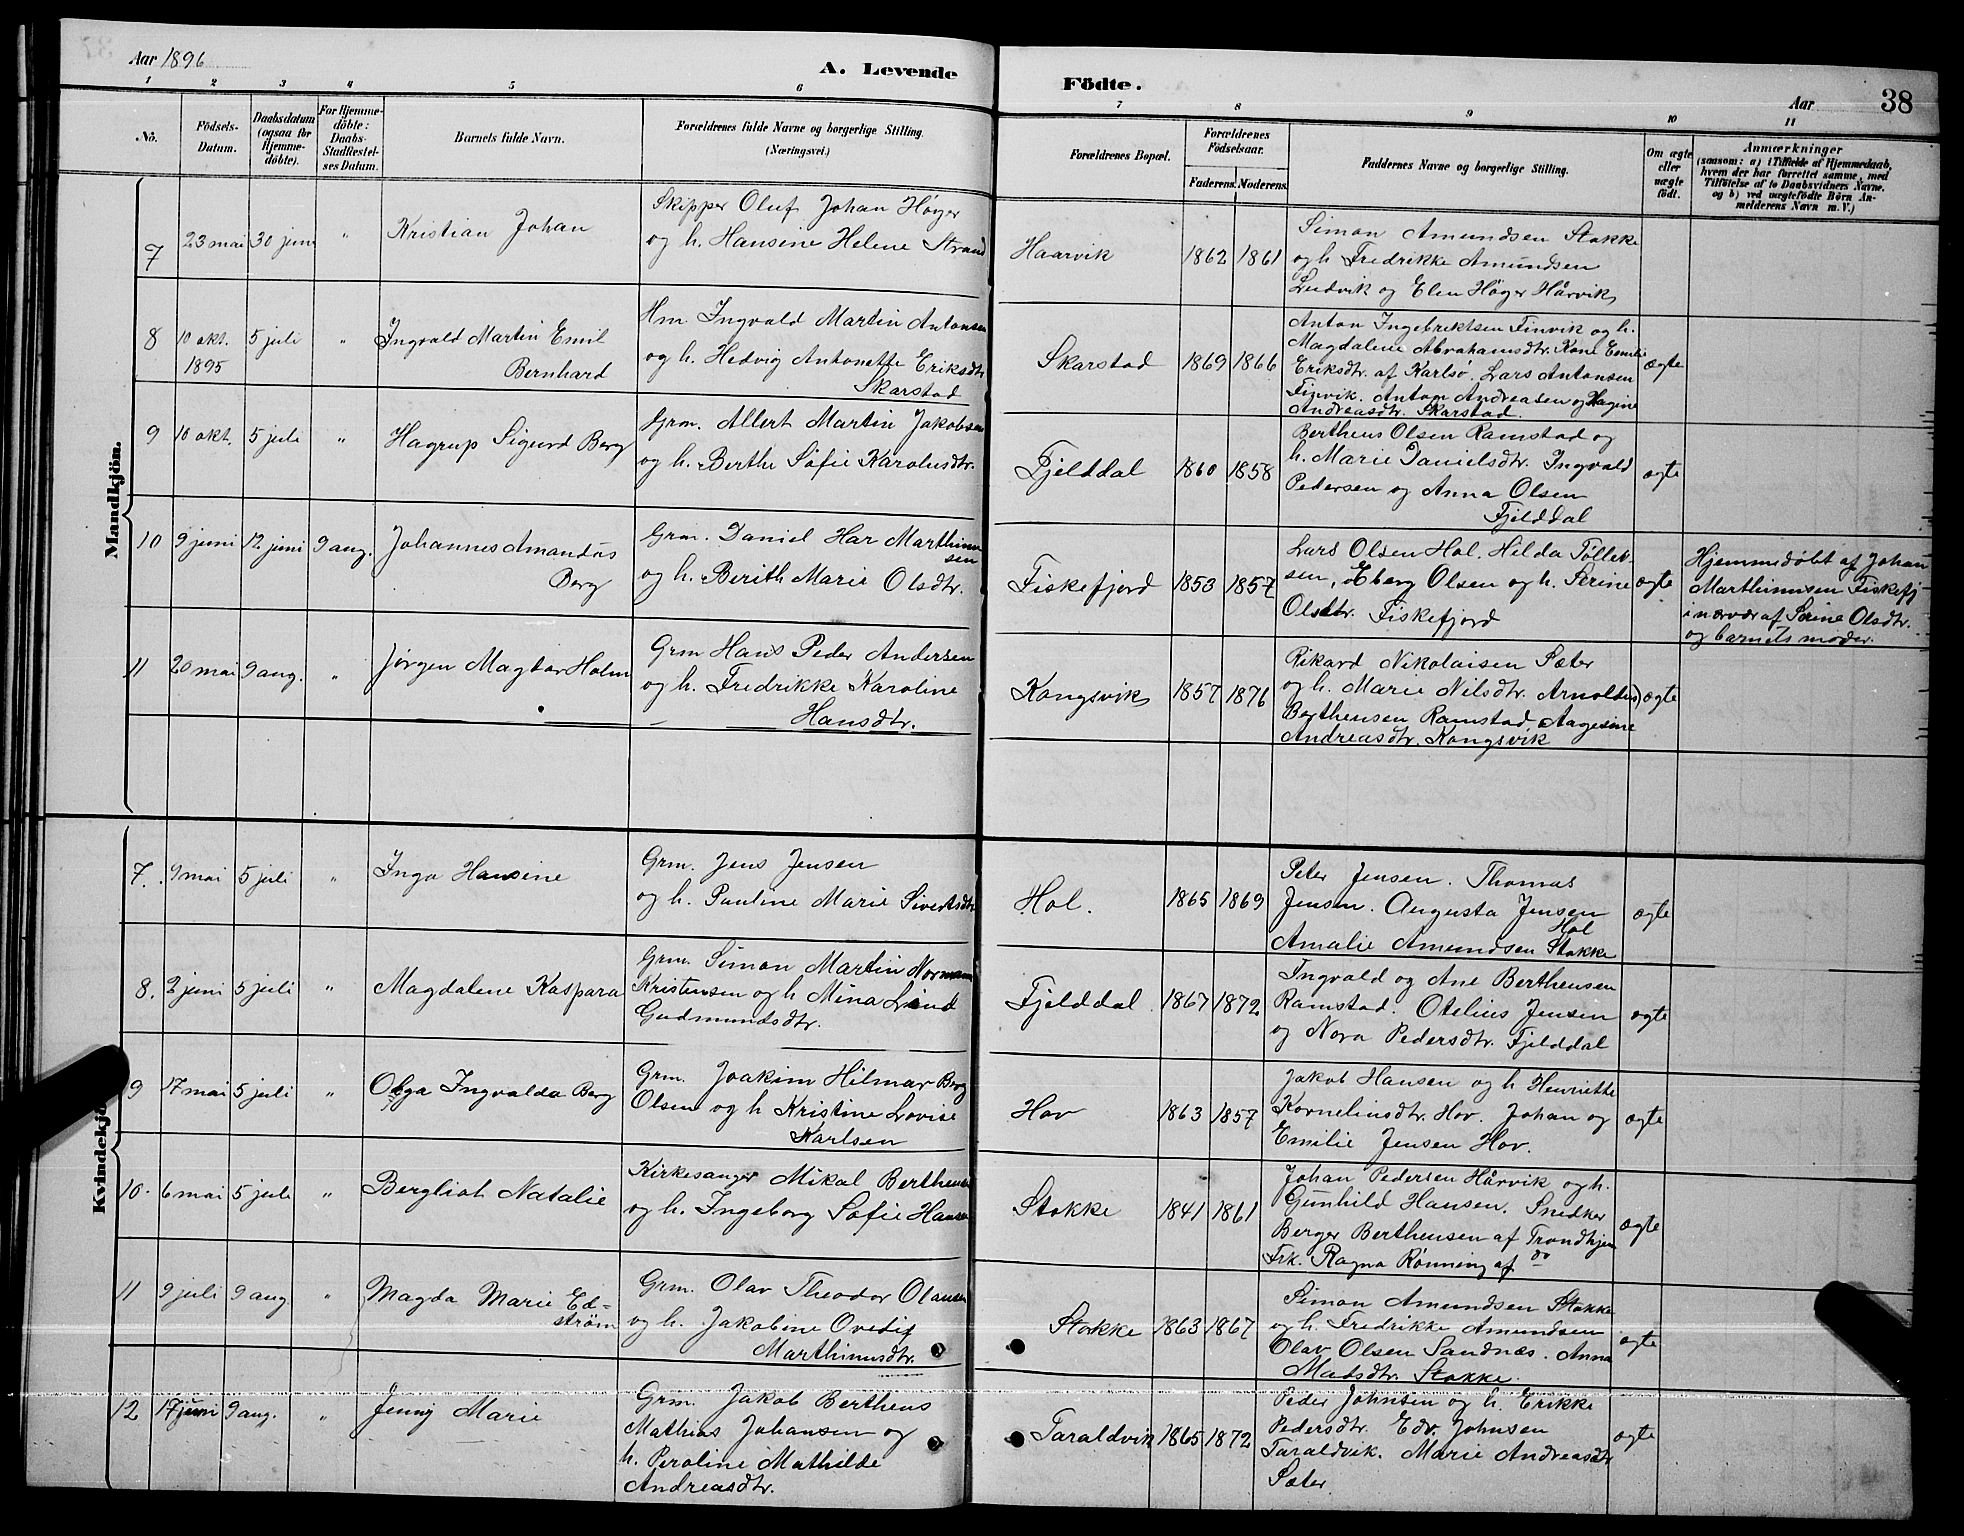 Aar 1896
A. Levende
1 2 3 4 5 6
Nô.
Födsels-Datum.
Daabsdatum (ogsaa for Hjemme-döbte).
For Hjemme-döbte: Daabs-Stadfæstel-ses Datum.
Barnets fulde Navn.
Forældrenes fulde Navne og borgerlige Stilling. (Næringsvei.)
Födte.
Aar
38
7 8 9 10 11
Forældrenes Bopæl.
Forældrenes Födselsaar.
Faderens. Moderens.
Faddernes Navne og borgerlige Stilling.
Om ægte eller uægte födt.
Anmærkninger
(saasom: a) i Tilfælde af Hjemmedaab,
hvem der har forrettet samme, med
Tilföielse af to Daabsvidners Navne.
og b) ved uægtefödte Börn An-
melderens Navn m. V.)
Mandkjön.
7 23 mai 30 juni " Kristian Johan
Skipper Oluf Johan Høyer
og h. Hansine Helene Strand
Haarvik 1862 1861
Simon Amundsen Stokke
og h Fredrikke Amundsen
Ludvik og Elen Høyer Hårvik
8 10 okt. 1895 5 juli " Ingvald Martin Emil
Bernhard
Hm. Ingvald Martin Antonsen
og h. Hedvig Antonette Eriksdtr.
Skarstad
Skarstad 1869 1866
Anton Ingebriktsen Finvik og h.
Magdalene Abrahamsdtr. Kone Emilie
Eriksdtr. af Karlsø. Lars Antonsen
Finvik. Anton Andreasen og Hagine
Andreasdtr. Skarstad.
ægte
9 10 okt. 5 juli " Hagrup Sigurd Berg
Grm. Albert Martin Jakobsen
og h. Berthe Sofie Karolusdtr.
Fjelddal 1860 1858
Bertheus Olsen Ramstad og
h. Marie Danielsdtr. Ingvald
Pedersen og Anna Olsen
Fjelddal
ægte
10 9 juni 12 juni 9 aug. Johannes Amandus
Berg
Grm. Daniel Har Marthinus
sen
og h. Berith Marie Olsdtr.
Fiskefjord 1853 1857
Lars Olsen Hol. Hilda Tøllef-
sen, Eberg Olsen og h. Serine
Olsdtr. Fiskefjord
ægte
Hjemmedøbt af Johan
Marthinusen Fiskefj
i nærvær af Serine Olsdtr.
og barnets moder.
11 20 mai 9 aug. " Jørgen Magtor Holm
Grm Hans Peder Andersen
og h. Fredrikke Karoline
Hansdtr.
Kongsvik 1857 1876
Rikard Nikolaisen Sæter
og h. Marie Nilsdtr. Arnoldus
Bertheusen Ramstad. Aagesine
Andreasdtr. Kongsvik
ægte
Kvindekjö
7. 9 mai 5 juli " Inga Hansine
Grm. Jens Jensen
og h. Pauline Marie Sivertsdtr
Hol. 1865 1869
Peter Jensen. Thomas
Jensen. Augusta Jensen
Hol
Amalie Amundsen Stokke
ægte
8. 2 juni 5 juli " Magdalene Kaspara
Grm. Simon Martin Normann
Kristensen og h Mina Lind
Gudmundsdtr.
Fjelddal. 1867 1872
Ingvald og Ane Bertheusen
Ramstad. Otelius Jensen
og Nora Pedersdtr. Fjelddal
ægte
9 17 mai 5 juli " Olga Ingvalda Berg
Grm. Joakim Hilmar Berg
Olsen og h Kristine Lovise
Karlsen
Hov 1863 1857
Jakob Hansen og h Henriette
Korneliusdtr. Hov. Johan og
Emilie Jensen Hov.
ægte
10. 6 mai 5 juli " Bergliot Natalie
Kirkesanger Mikal Bertheusen
og h. Ingeborg Sofie Hansen
Stokke 1841 1861
Johan Pedersen Hårvik og h.
Gunhild Hansen. Snedker
Berger Bertheusen af Trondhjem
Frk. Ragna Rønning af do
ægte
11 9 juli 9 aug. " Magda Marie Ed-
strøm
Grm. Olav Theodor Olausen
og h. Jakobine Ovedie
Marthinusdtr.
Stokke 1863 1867
Simon Amundsen Stokke
og h. Fredrikke Amundsen
Olav Olsen Sandnæs. Anna
Madsdtr. Stokke.
ægte
12 17 juni 9 aug. " Jenny Marie
Grm. Jakob Bertheus
Mathias Johansen og
h. Peroline Mathilde
Andreasdtr.
Taraldvik 1865 1872
Peder Johnsen og h. Erikke
Pedersdtr. Edv. Johnsen
Taraldvik. Marie Andreasdtr
Sæter.
ægte